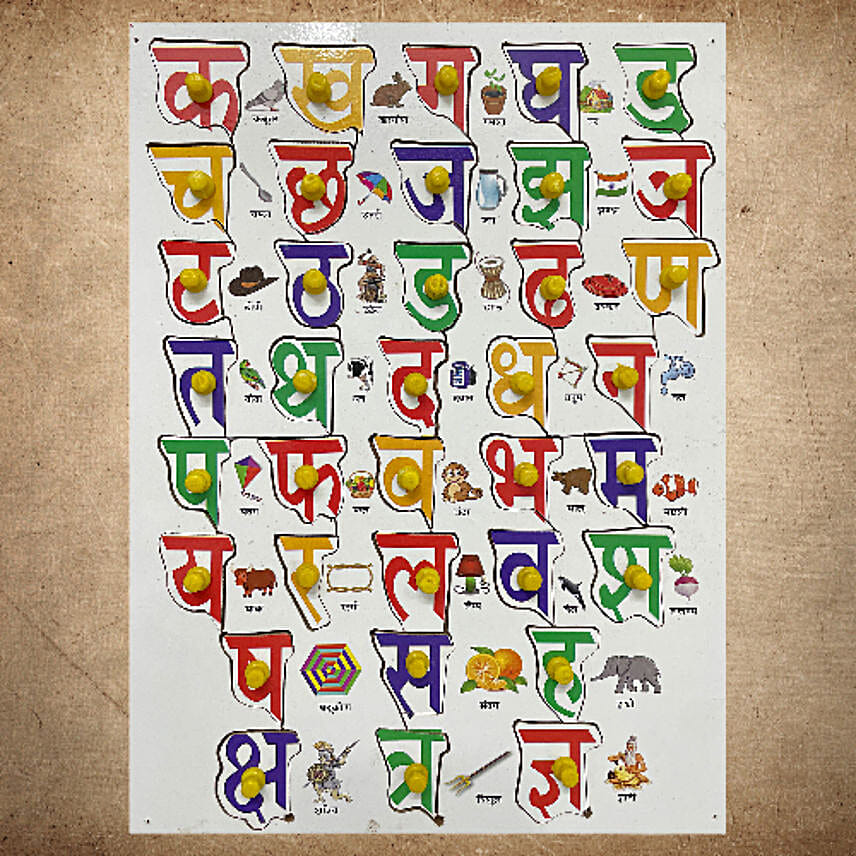 क ख ग घ ङ
कबूतर खरगोश गमला घर
च छ ज झ ञ
चम्मच छतरी जग झण्डा
ट ठ ड ढ ण
टोपी
त थ द ध न
तोता धनुष नल
प फ ब भ म
पतंग फल बंदर भालू मछली
य र ल व श
याक लैंप व्हेल शलगम
ष स ह
षट्कोण संतरा हाथी
क्ष त्र ज्ञ
क्षत्रिय त्रिशूल ज्ञानी